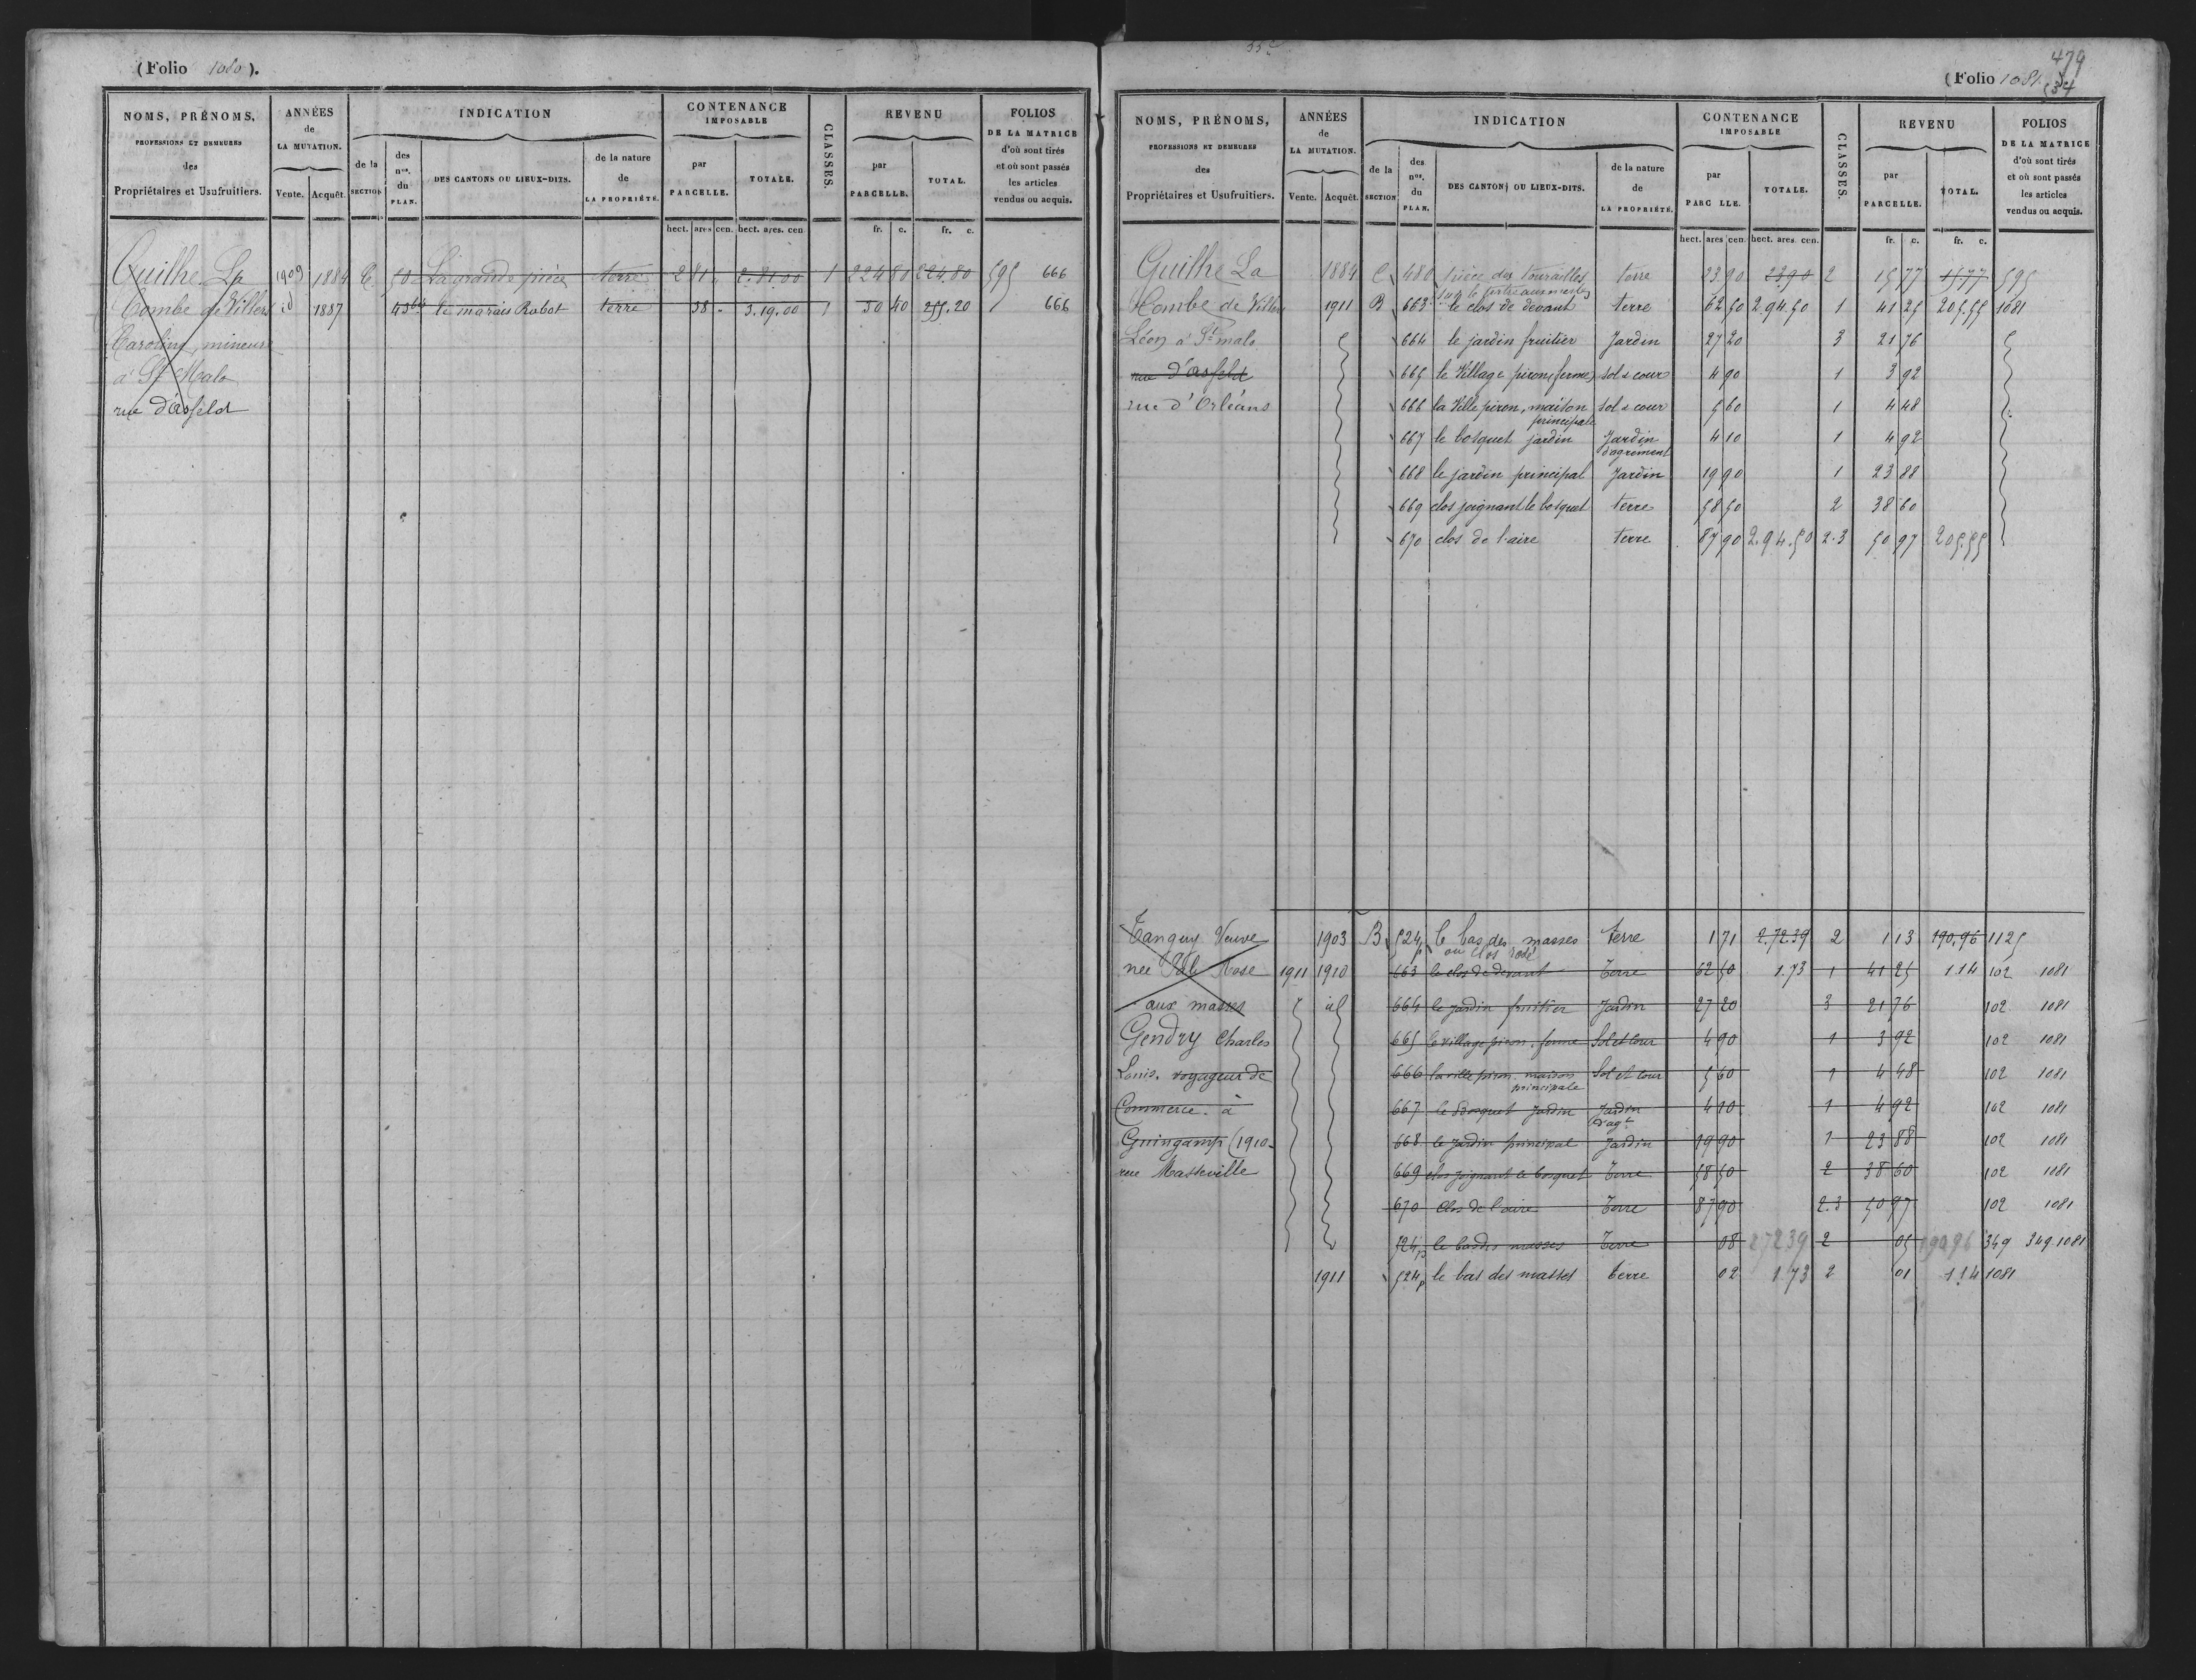 (Folio 1080).
NOMS, PRÉNOMS,
PROFESSIONS ET DEMEURES
des
Propriétaires et Usufruitiers.
ANNÉES
de
LA MUTATION.
Vente. Acquêt.
INDICATION
de la
SECTION
des
nos.
du
PLAN.
DES CANTONS OU LIEUX-DITS.
de la nature
de
LA PROPRIÉTÉ.
CONTENANCE
IMPOSABLE
par
PARCELLE.
TOTALE.
CLASSES.
REVENU
par
PARCELLE.
TOTAL.
FOLIOS
DE LA MATRICE
d'où sont tirés
et où sont passés
les articles
vendus ou acquis.
hect. ares cen. hect. ares. cen. fr. c. fr. c.
Guilhe La 1909 1884 C 50 La grande pièce terre 2 81 " 2.81.00 1 224 80 224.80 595 666
Combe de Villers id 1887 43bis le marais Rabot terre 38 " 3.19.00 1 30 40 255.20 666
Caroline, mineure
à St Malo
rue d'Asfeld
479
(Folio 1081.
534
NOMS, PRÉNOMS,
PROFESSIONS ET DEMEURES
des
Propriétaires et Usufruitiers.
ANNÉES
de
LA MUTATION.
Vente. Acquêt.
INDICATION
de la
SECTION
des
nos.
du
PLAN.
DES CANTONS OU LIEUX-DITS.
de la nature
de
LA PROPRIÉTÉ.
CONTENANCE
IMPOSABLE
par
PARC LLE.
TOTALE.
CLASSES.
REVENU
par
PARCELLE.
TOTAL.
FOLIOS
DE LA MATRICE
d'où sont tirés
et où sont passés
les articles
vendus ou acquis.
hect. ares cen. hect. ares. cen. fr. c. fr. c.
Guilhe La 1884 C 480 pièce des tourailles terre 23 90 23 90 2 15 77 15.77 595
sur le tertre aux merles
Combe de Villers 1911 B 663 le clos de devant terre 62 50 2.94.50 1 41 25 205.55 1081
Léon à St malo 664 le jardin fruitier Jardin 27 20 3 21 76
rue d'Asfeld 665 le Village piron (ferme) sol & cour 4 90 1 3 92
rue d'Orléans 666 la Ville piron, maison sol & cour 5 60 1 4 48
principale
667 le bosquet jardin Jardin 4 10 1 4 92
d'agrément
668 le jardin principal Jardin 19 90 1 23 88
669 clos joignant le bosquet terre 58 50 2 38 60
670 clos de l'aire terre 87 90 2.94.50 2.3 50 97 205.55
Tanguy Veuve 1903 B 524p le bas des masses terre 1 71 2.72.39 2 1 13 190.96 1125
ou clos
née Rose 1911 1910 663 le clos de devant Terre 62 50 1.73 1 41 25 1.14 102 1081
aux masses id 664 le jardin fruitier Jardin 27 20 3 21 76 102 1081
Gendry Charles 665 le village piron. ferme Sol et Cour 4 90 1 3 92 102 1081
Louis. voyageur de 666 la ville piron. maison Sol et Cour 5 60 1 4 48 102 1081
principale
Commerce. à 667 le Bosquet Jardin Jardin 4 10 1 4 92 102 1081
d'agt
Guingamp (1910 668 le Jardin principal Jardin 19 90 1 23 88 102 1081
rue Masseville 669 clos joignant le bosquet Terre 58 50 2 38 60 102 1081
670 Clos de l'aire Terre 87 90 2.3 50 97 102 1081
524p le bas des masses Terre 08 27239 2 05 19096 349 349.1081
1911 524p le bas des masses terre 02 1.73 2 01 1.14 1081